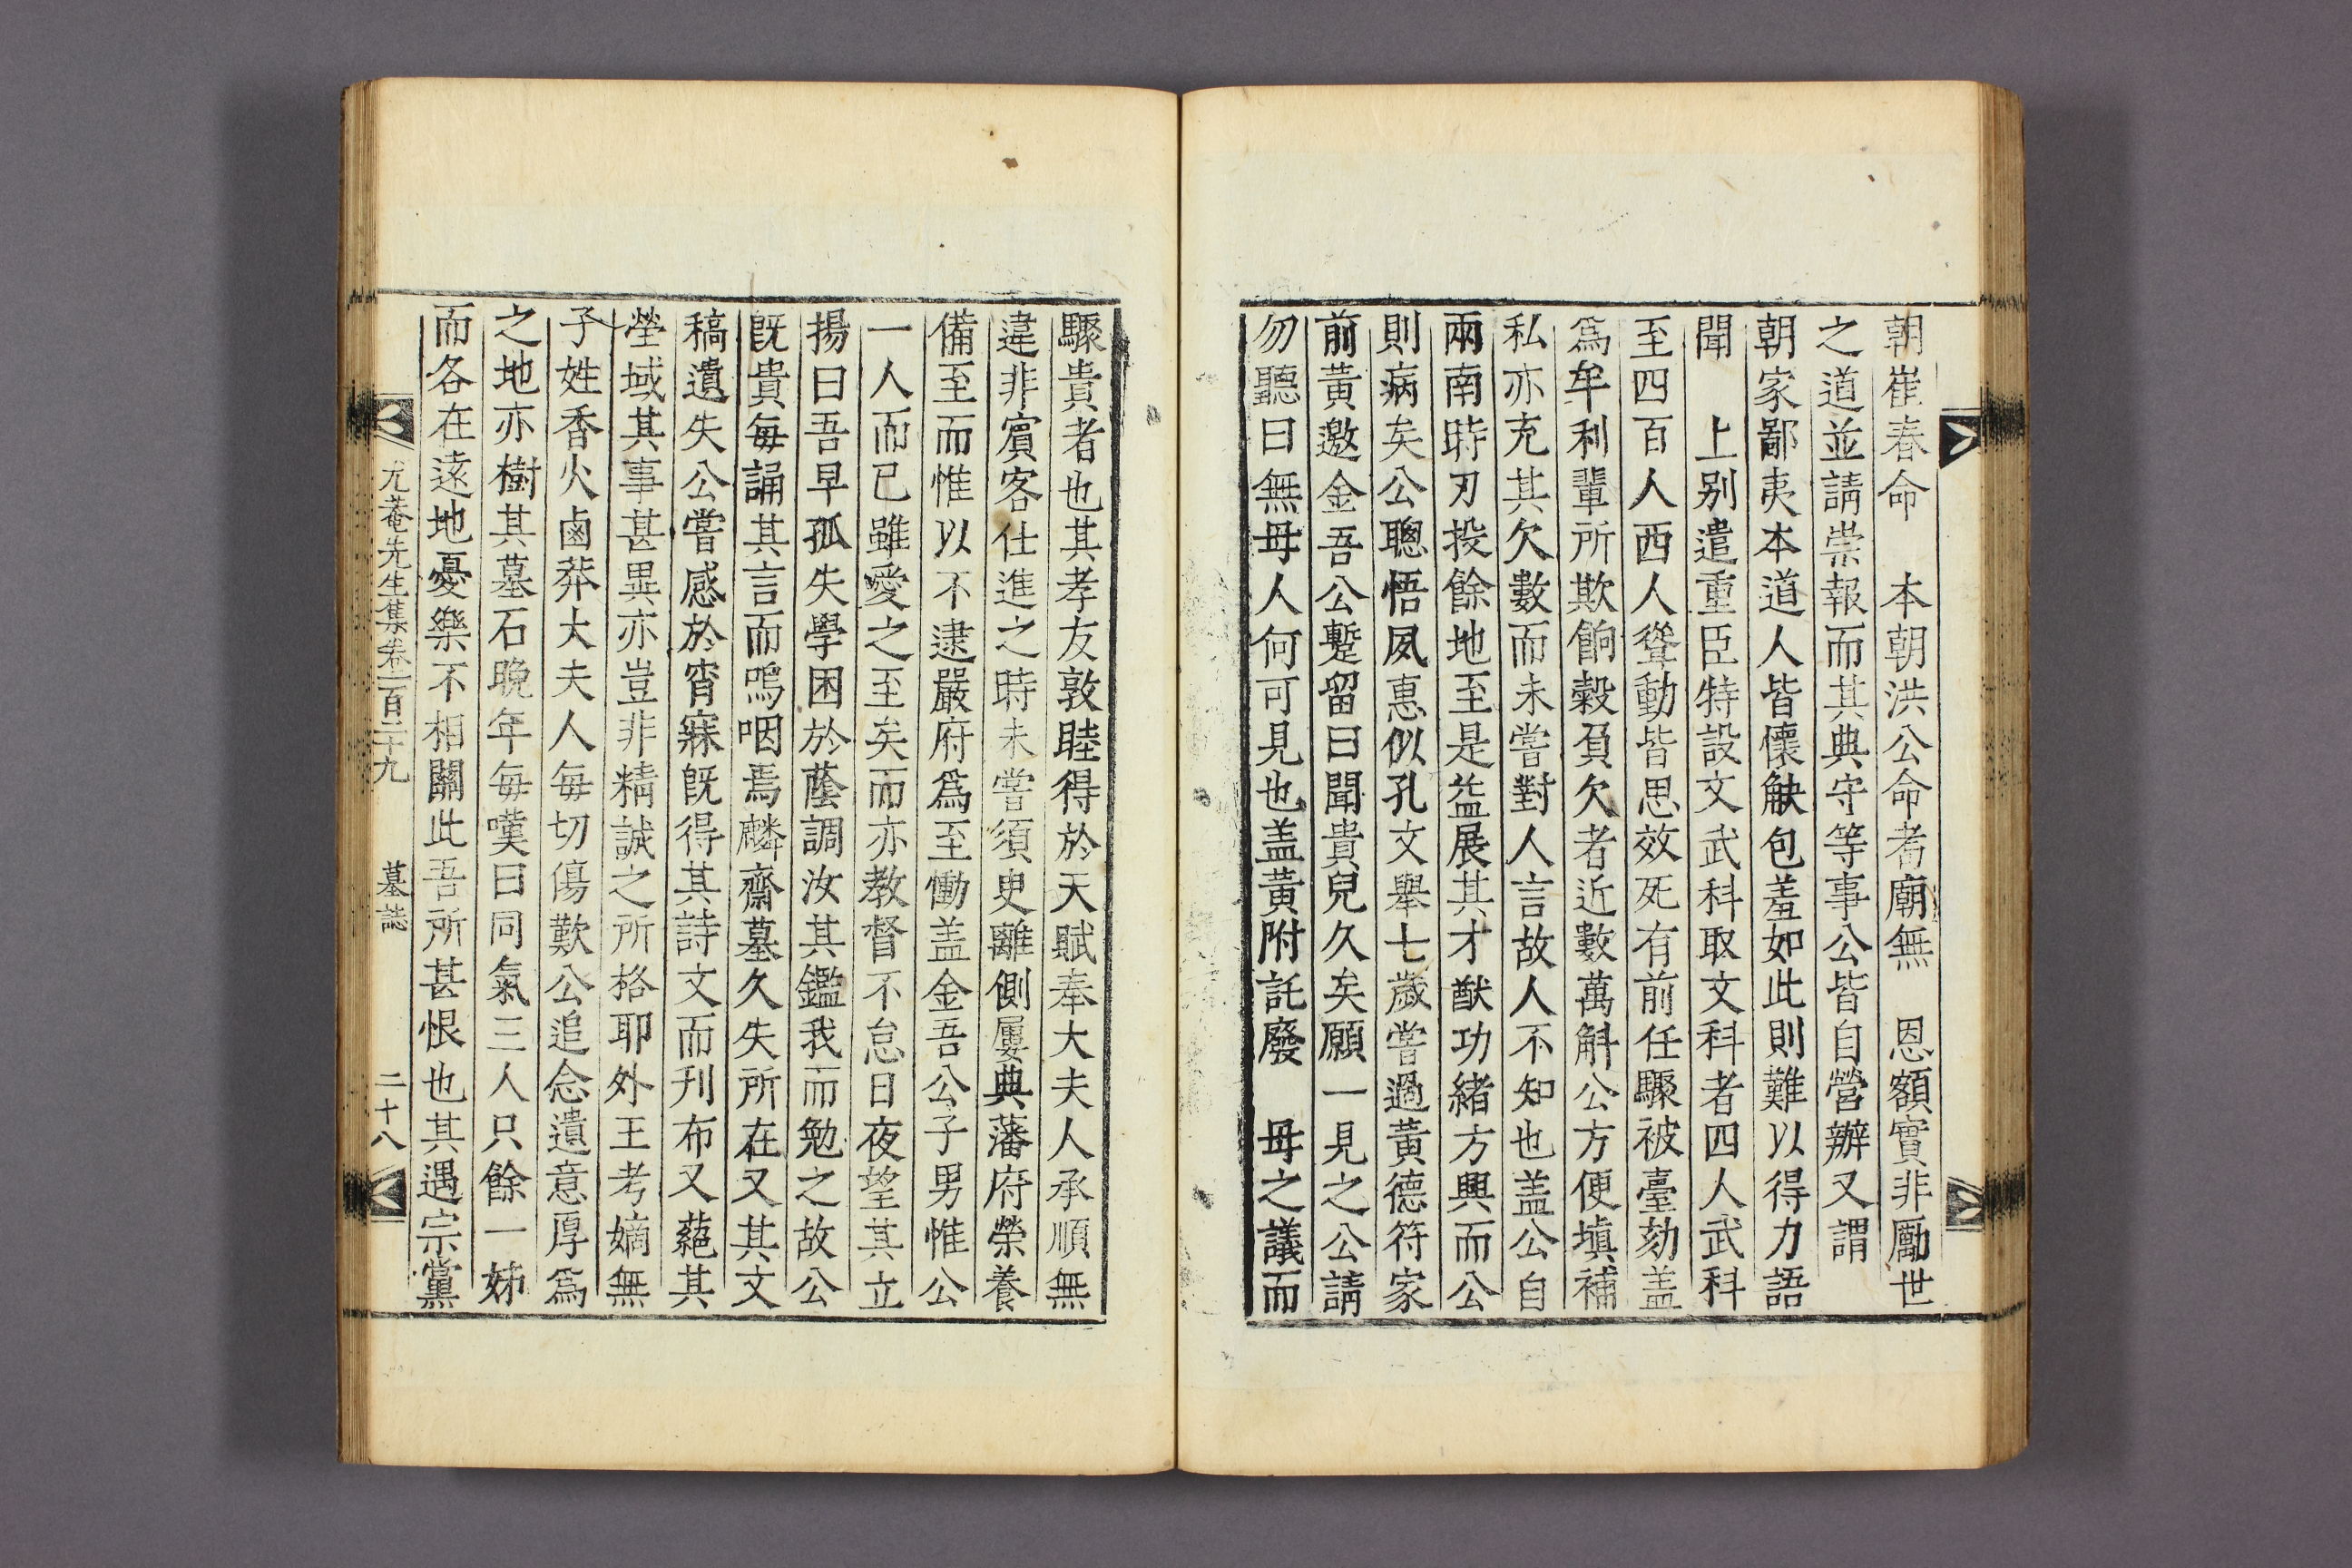 朝崔春命　本朝洪公命耇廟無　恩額實非勵世
之道並請崇報而其典守等事公皆自營辦又謂
朝家鄙夷本道人皆懷觖包羞如此則難以得力語
聞　上別遣重臣特設文武科取文科者四人武科
至四百人西人聳動皆思效死有前任驟被臺劾盖
爲牟利輩所欺餉糓負欠者近數萬斛公方便塡補
私亦充其欠數而未嘗對人言故人不知也盖公自
兩南時刃投餘地至是益展其才猷功緖方興而公
則病矣公聰悟夙惠似孔文擧七歲嘗過黃德符家
前黃邀金吾公蹔留曰聞貴兒久矣願一見之公請
勿聽曰無毋人何可見也盖黃附託廢　毋之議而
驟貴者也其孝友敦睦得於天賦奉大夫人承順無
違非賓客仕進之時未嘗須臾離側屢典藩府榮養
備至而惟以不逮嚴府爲至慟盖金吾公子男惟公
一人而已雖愛之至矣而亦教督不怠日夜望其立
揚曰吾早孤失學困於蔭調汝其鑑我而勉之故公
旣貴每誦其言而嗚咽焉麟齋墓久失所在又其文
稿遺失公嘗感於宵寐旣得其詩文而刊布又蕝其
塋域其事甚異亦豈非精誠之所格耶外王考嫡無
子姓香火鹵莽大夫人每切傷歎公追念遺意厚爲
之地亦樹其墓石晩年每嘆曰同氣三人只餘一姊
而各在遠地憂樂不相關此吾所甚恨也其遇宗黨
尤菴先生集卷一百二十九　墓誌　二十八